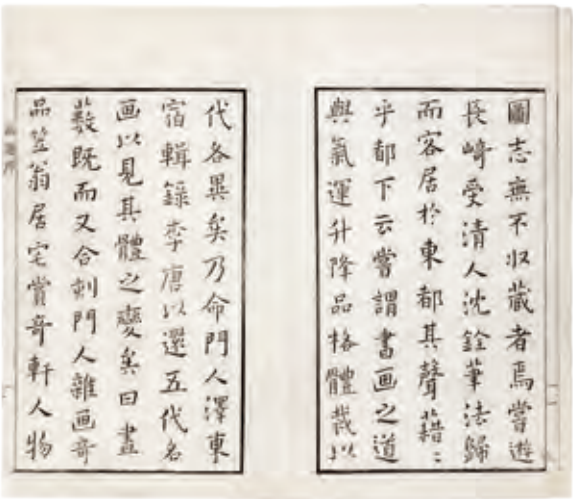 圖志無不収藏者焉嘗遊
長崎受清人沈銓筆法歸
而客居於東都其聲藉〻
乎都下云嘗謂書画之道
與氣運升降品格體裁以
代各異矣乃命門人澤東
宿輯錄李唐以還五代名
画以見其體之變矣曰畫
藪既而又合刻門人雜画奇
品笠翁居宅賞奇軒人物